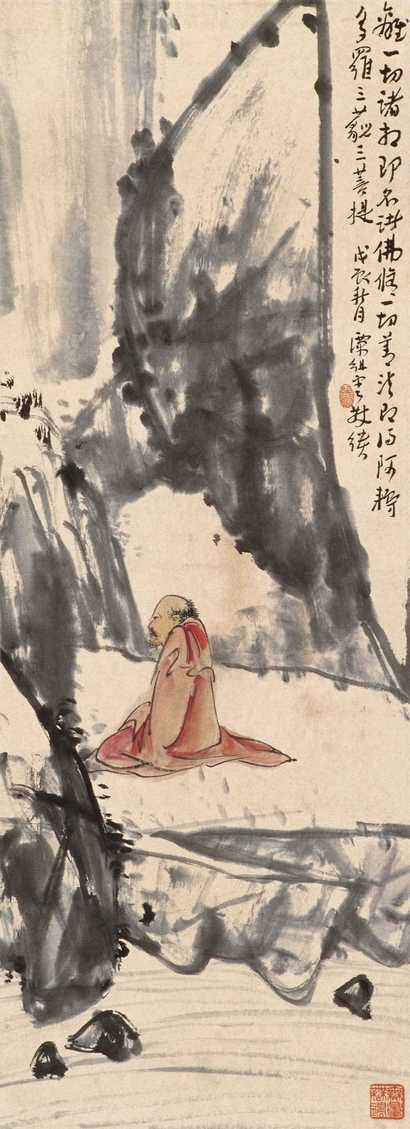 離一切諸相即名諸佛修一切善法即得阿耨
多羅三藐三菩提 戊辰秋月